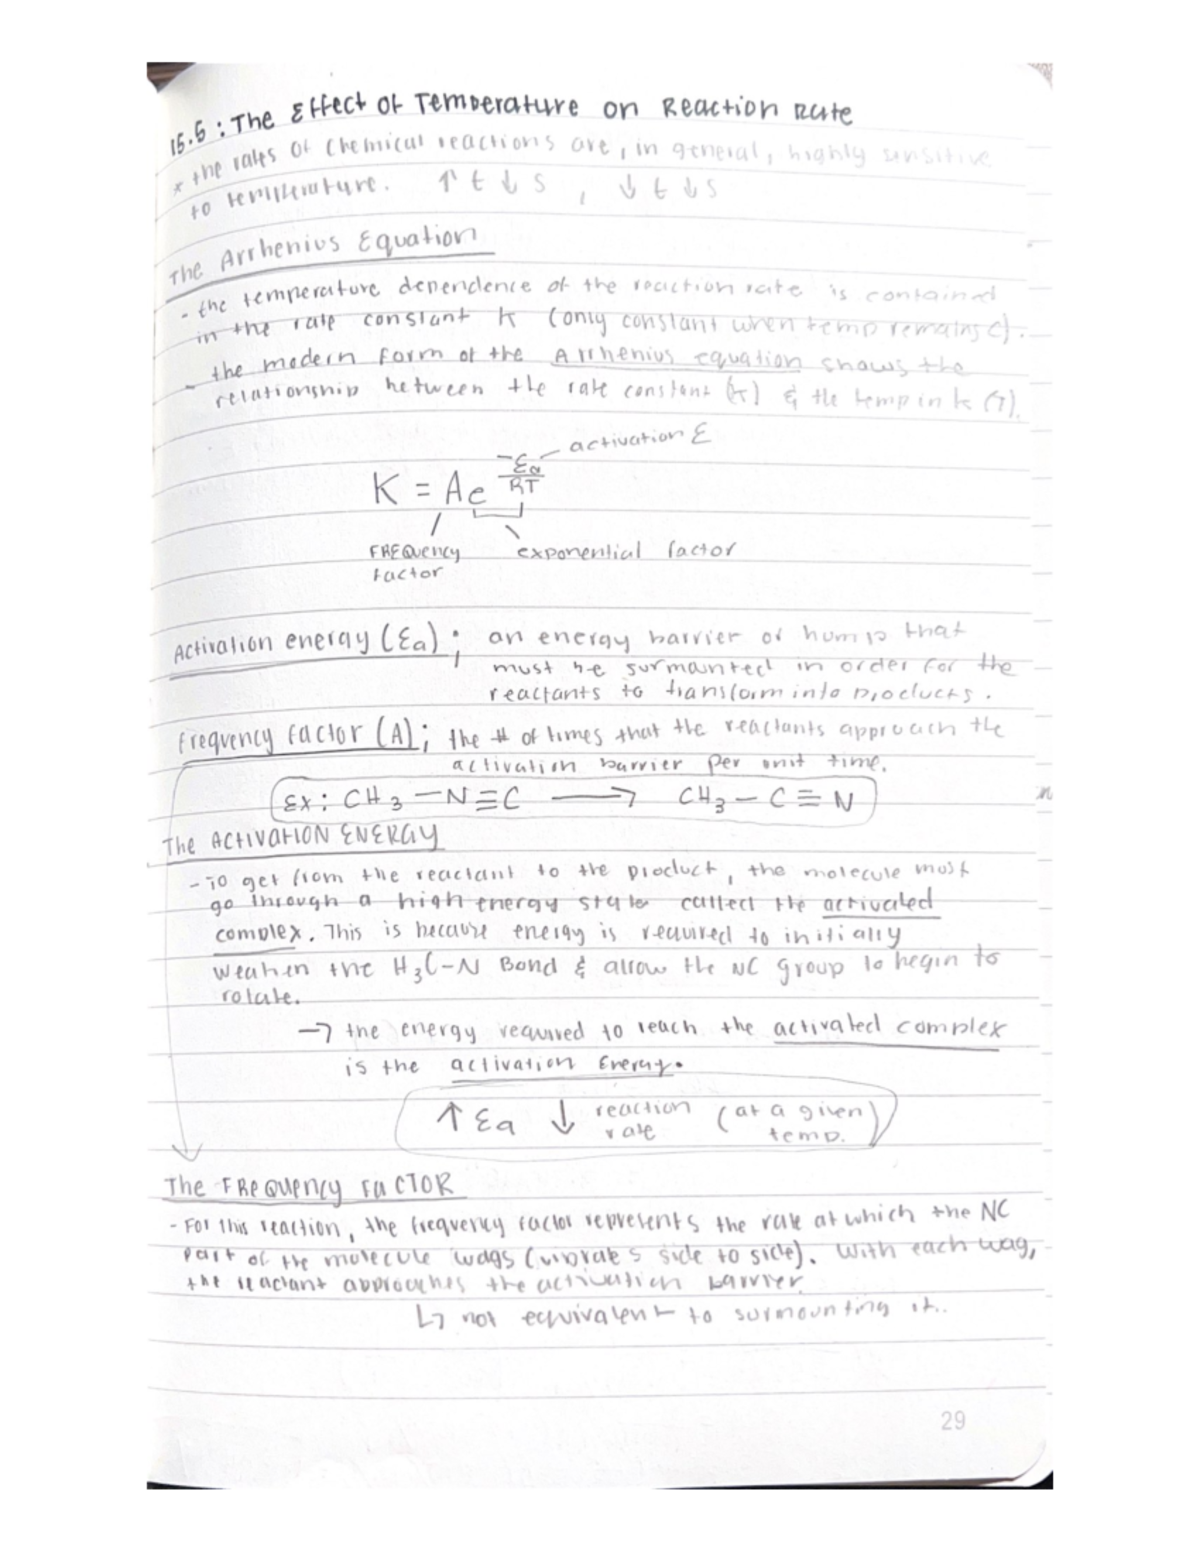 15.5: The Effect of Temperature on Reaction Rate
* the rates of chemical reactions are, in general, highly sensitive
to temperature. ↑ t ↓ s , ↓ t ↓ s
The Arrhenius Equation
- the temperature dependence of the reaction rate is contained
in the rate constant k (only constant when temp remains c).
- the modern form of the Arrhenius equation shows the
relationship between the rate constant (k) & the temp in k (T).
K = Ae^(-Ea/RT) activation E
FREQuency factor exponential factor
Activation energy (Ea); an energy barrier or hump that
must be surmounted in order for the
reactants to transform into products.
Frequency factor (A); the # of times that the reactants approach the
activation barrier per unit time.
Ex: CH3 — N ≡ C ⟶ CH3 — C ≡ N
The ACTIVATION ENERGY
- To get from the reactant to the product, the molecule must
go through a high energy state called the activated
complex. This is because energy is required to initially
weaken the H3C-N Bond & allow the NC group to begin to
rotate.
→ the energy required to reach the activated complex
is the activation Energy.
↑ Ea ↓ reaction rate (at a given temp.)
The FREQuency FaCTOR
- For this reaction, the frequency factor represents the rate at which the NC
part of the molecule wags (vibrates side to side). With each wag,
the reactant approaches the activation barrier.
↳ not equivalent to surmounting it.
29